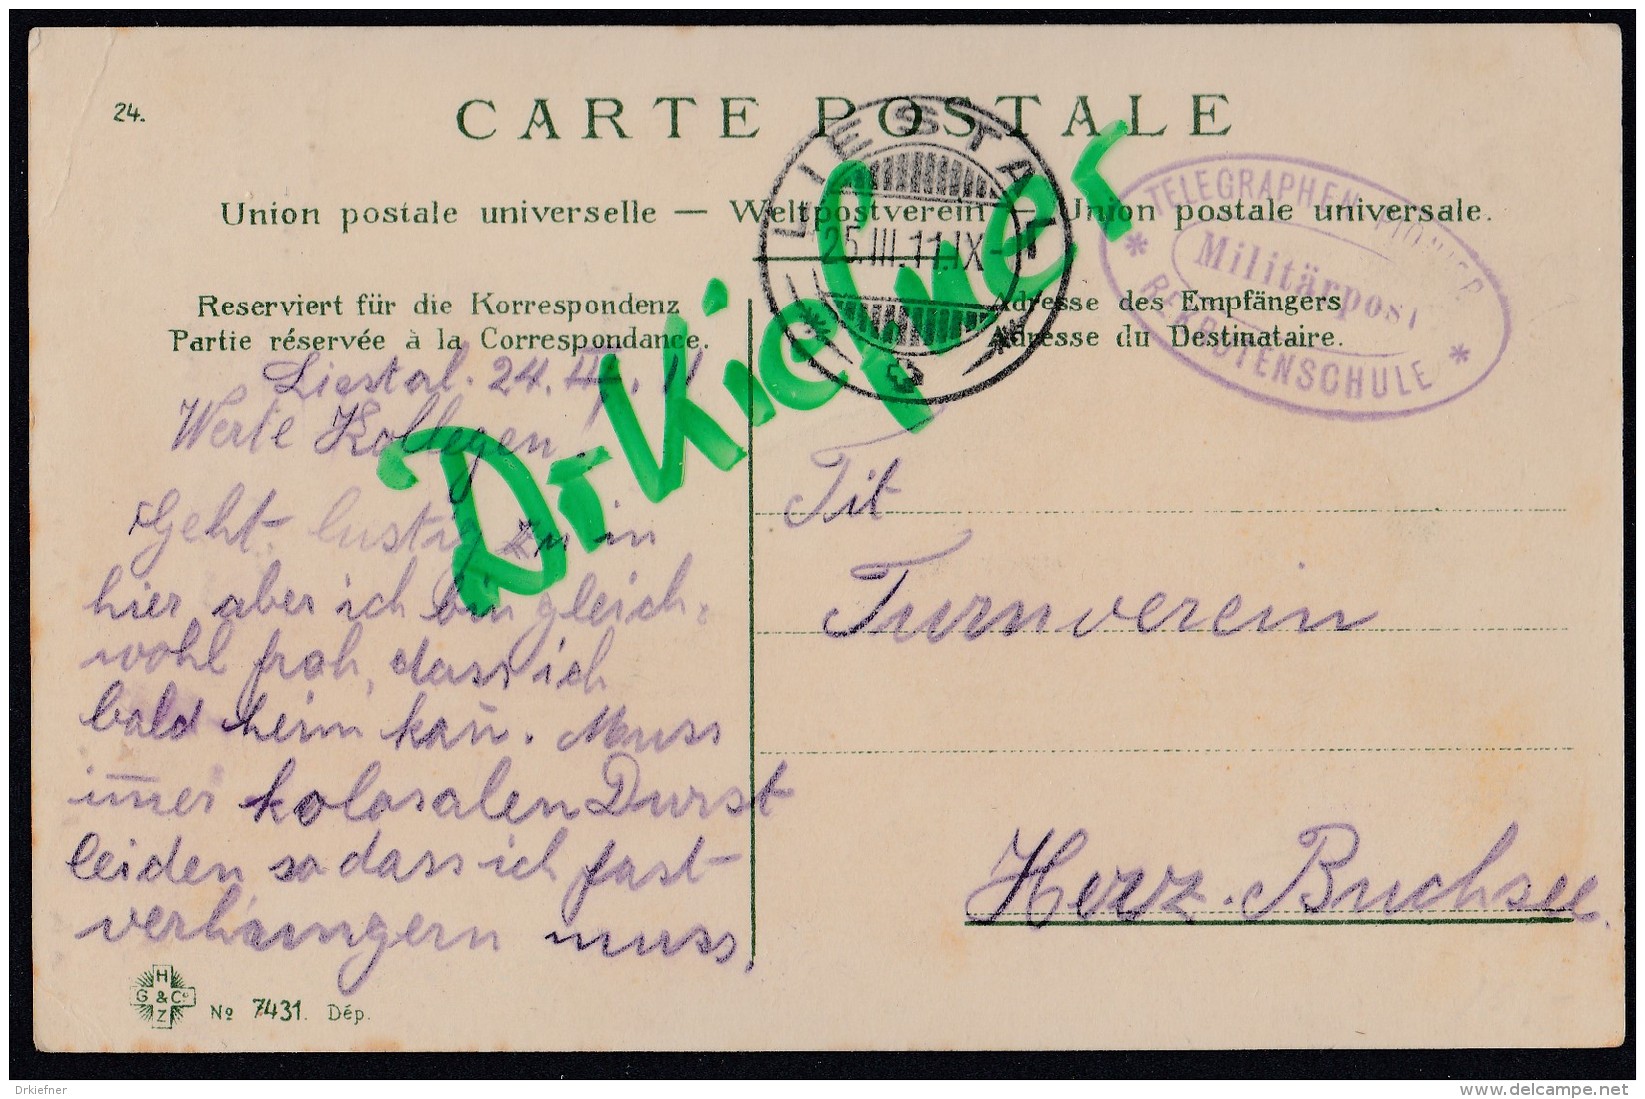 24.
CARTE POSTALE
Union postale universelle — Weltpostverein — Unión postale universale.
LIESTAL
25.III.11.IX-
TELEGRAPHEN PIONIER
Militärpost
* REKRUTENSCHULE *
Reserviert für die Korrespondenz
Partie réservée à la Correspondance.
Adresse des Empfängers
Adresse du Destinataire.
Liestal. 24. III. 11
Werte Kollegen!
Geht lustig zu in
hier aber ich bin gleich-
wohl froh, dass ich
bald heim kan̄. Muss
im̄er kolosalen Durst
leiden so dass ich fast
verhungern muss.
Tit
Turnverein
Herz.Buchsee.
H
G & Co
Z
No 7431. Dép.
Dr Kiefner
Drkiefner
www.delcampe.net